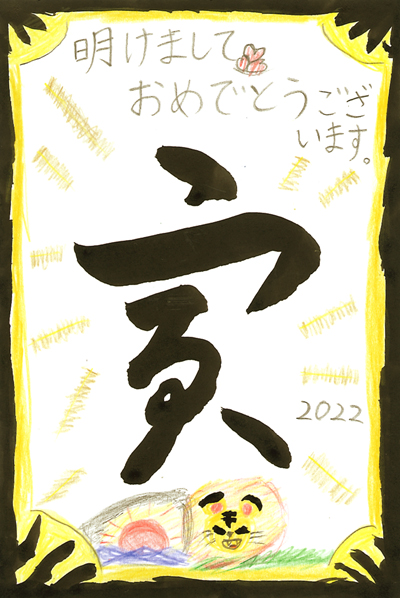 明けまして
おめでとうござ
います。
寅
2022